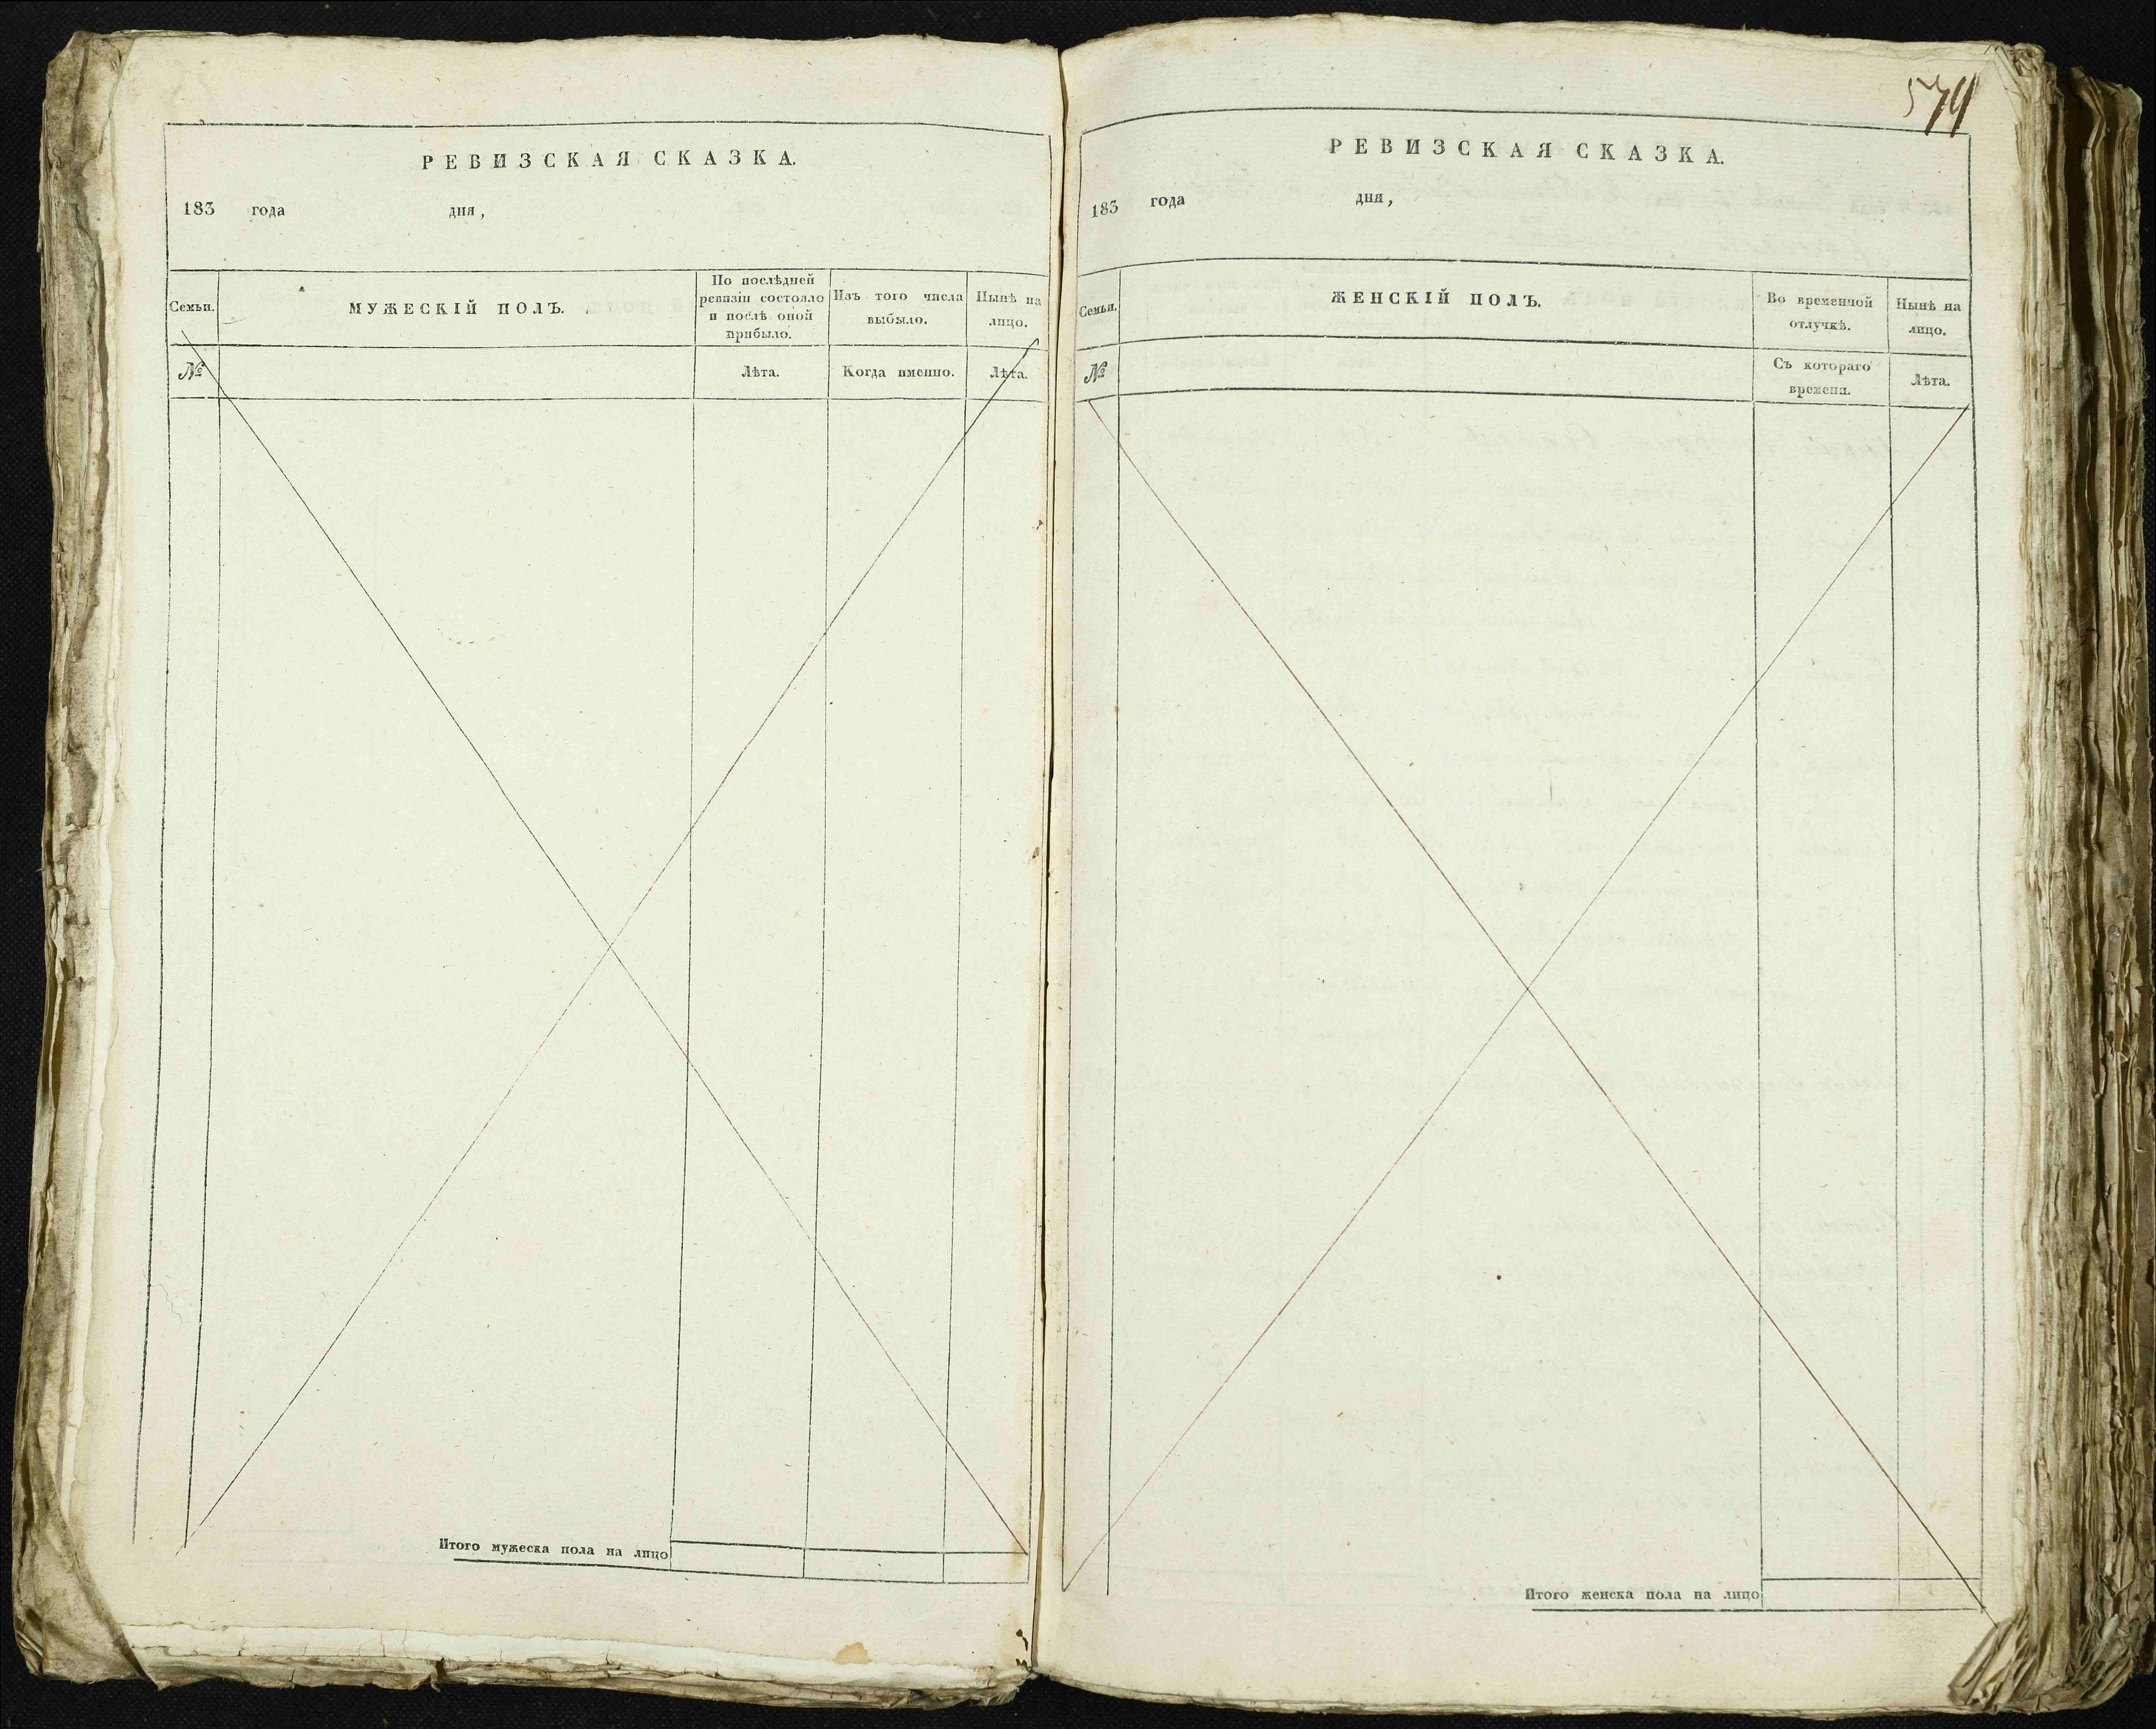 РЕВИЗСКАЯ СКАЗКА.
183 года дня,
Семьи.
МУЖЕСКІЙ ПОЛЪ.
По послѣдней
ревизіи состояло
и послѣ оной
прибыло.
Изъ того числа
выбыло.
Нынѣ на
лицо.
№
Лѣта.
Когда именно.
Лѣта.
Итого мужеска пола на лицо
574
РЕВИЗСКАЯ СКАЗКА.
183 года дня,
Семьи.
ЖЕНСКІЙ ПОЛЪ.
Во временной
отлучкѣ.
Нынѣ на
лицо.
№
Съ котораго
времени.
Лѣта.
Итого женска пола на лицо